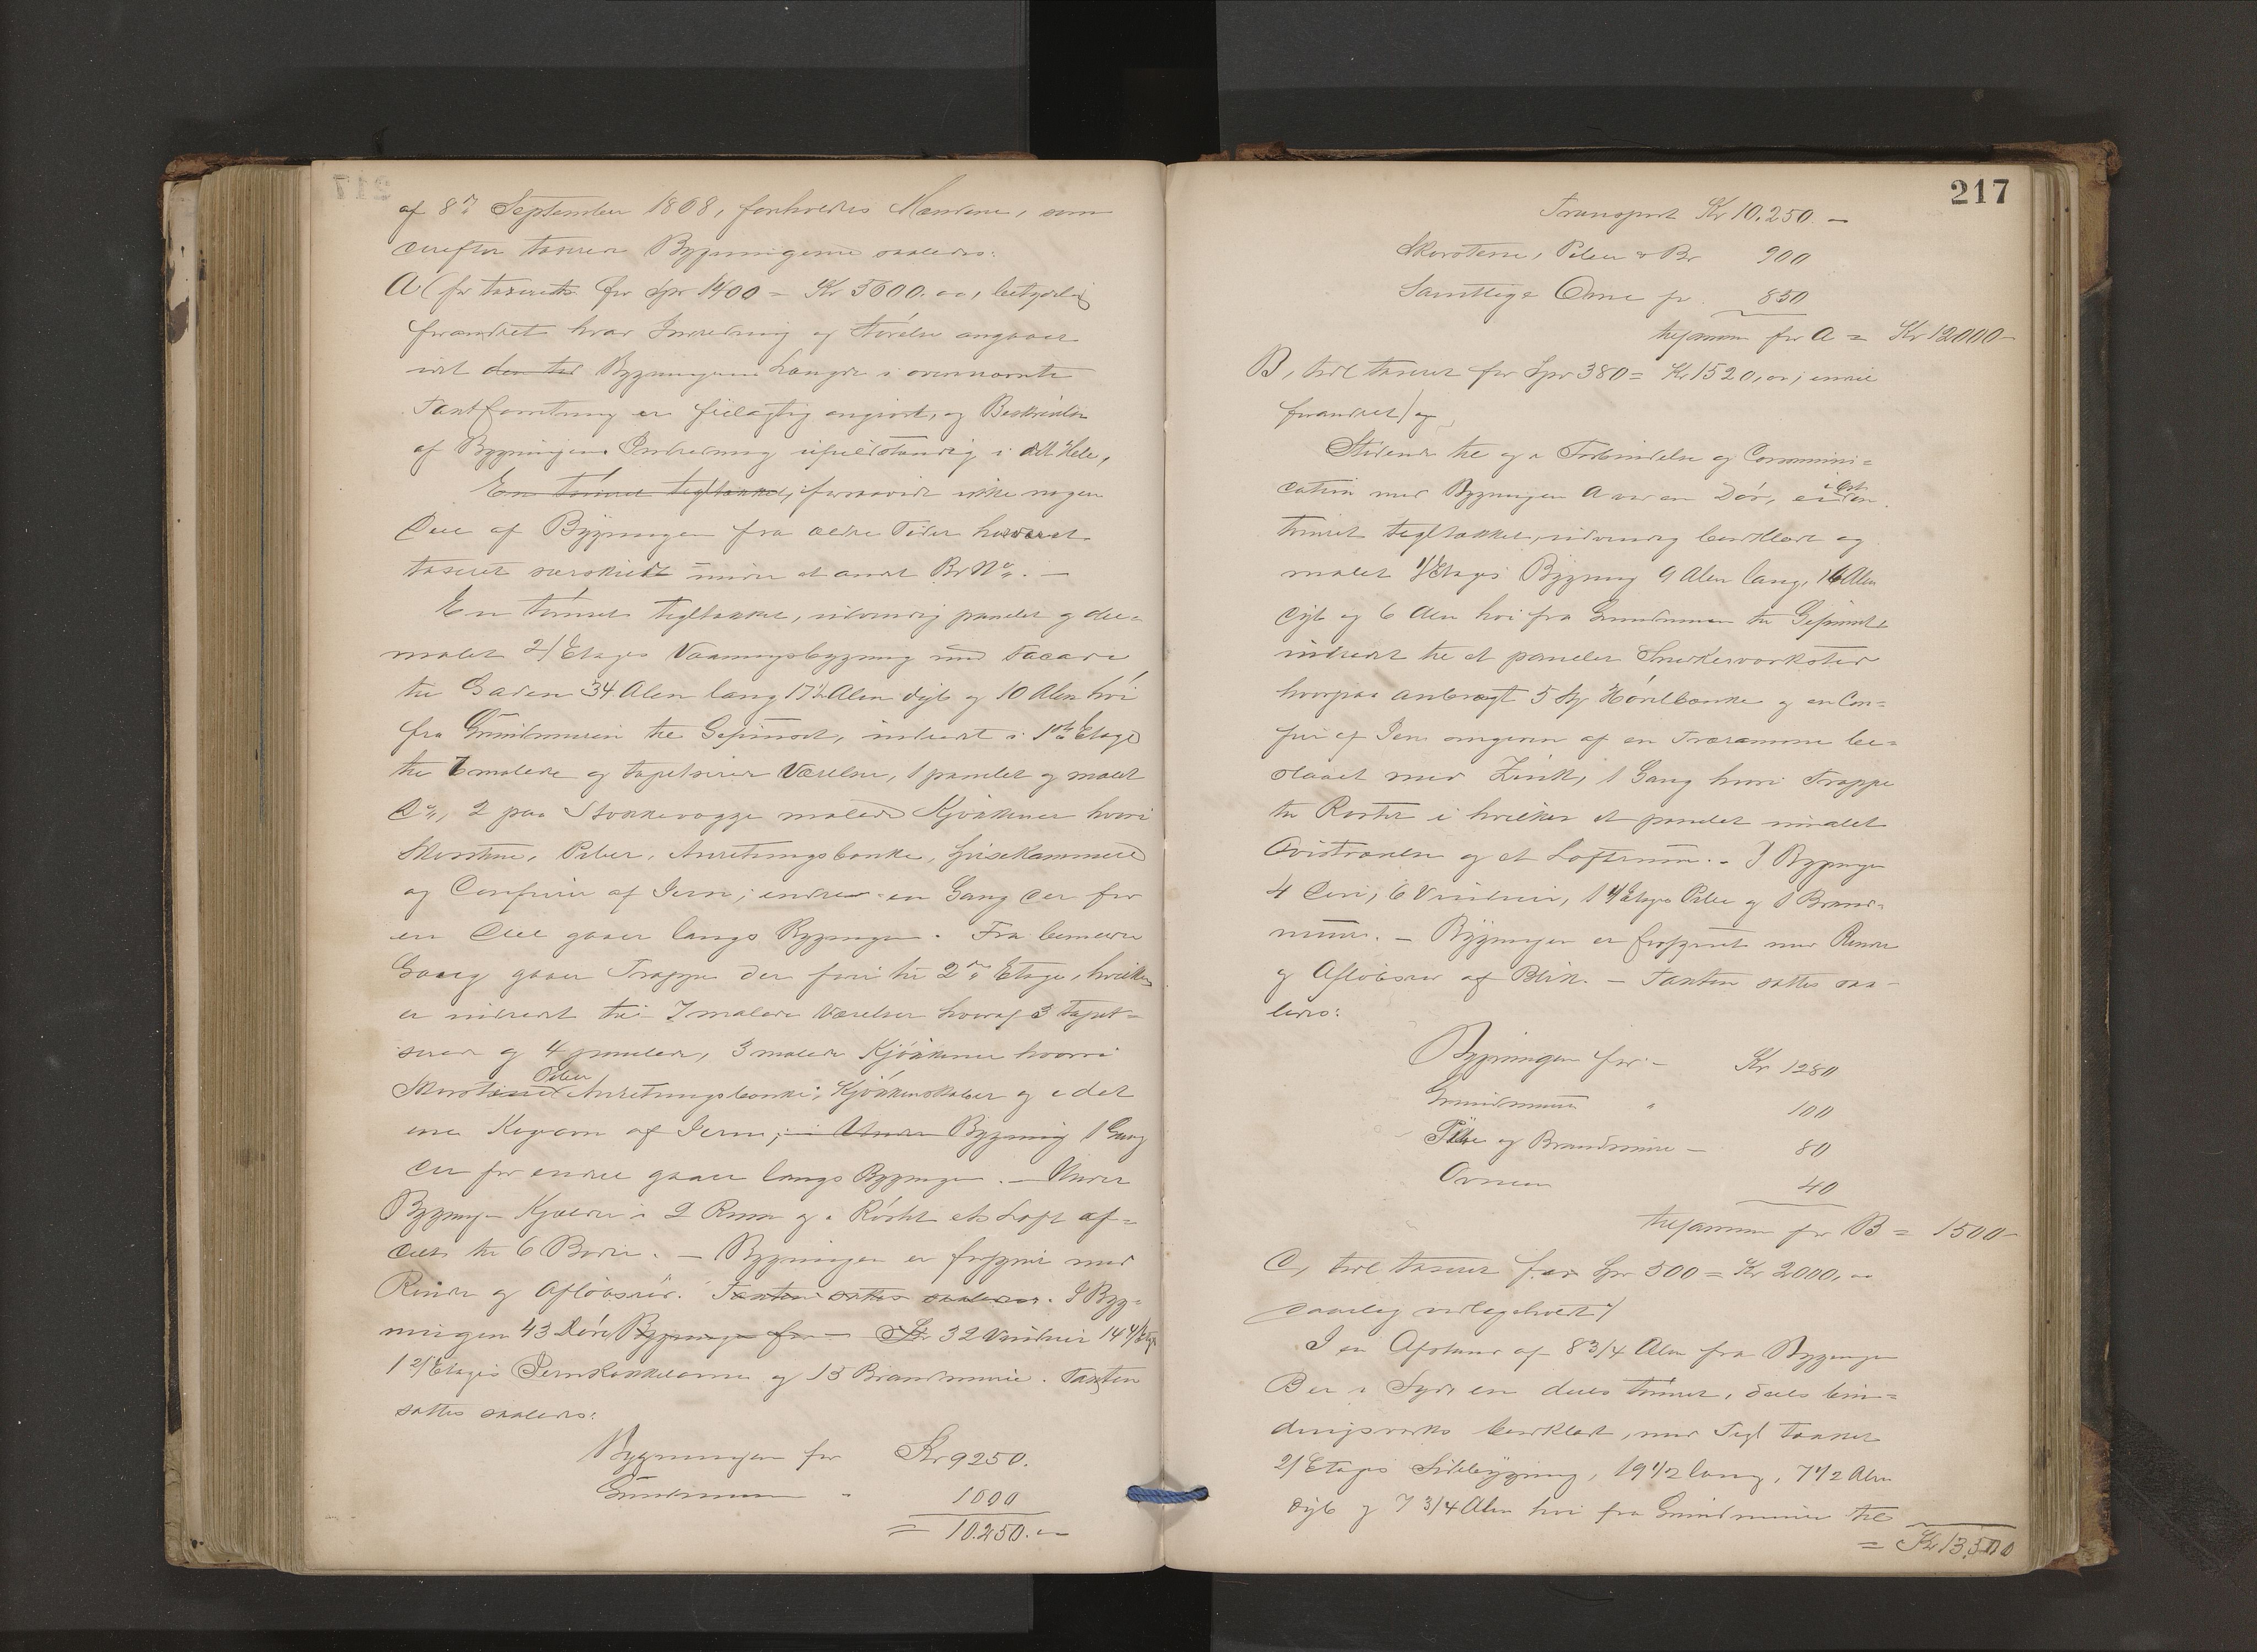 af 8de September 1868, foreholdtes Mændene, som
derefter taxerede Bygningerne saaledes:
A (før taxeret for Spd 1400 = Kr 5600.00, betydelig
forandret hvad Indredning og Størrelse angaaer
idet den ved Bygningens Længde i ovennævnte
Taxtforretning er feilagtig angivet, og Beskrivelsen
af Bygningens Indredning ufuldstændig i det Hele,
En tømret tegltækket, forsaavidt ikke nogen
Deel af Bygningen fra ældre Tider har været
taxeret særskildt under et andet Br No. —
En tømret tegltækket, udvendig panelet og olie-
malet 2/Etages Vaaningsbygning med Facade
til Gaden 34 Alen lang 17½ Alen dyb og 10 Alen høi
fra Grundmuren til Gesimset, indredet i 1ste Etage
til 6 malede og tapetserede Værelser, 1 panelet og malet
Do, 2 paa Stokkevægge malede Kjøkkener hvori
Skorstene, Piber, Anretningsbænke, Spisekammere
og Comfurer af Jern; endvidere en Gang der for
en Deel gaaer langs Bygningen. Fra bemeldte
Gang gaaer Trappe der fører til 2den Etage, hvilken
er indredet til 7 malede Værelser hvoraf 3 tapet-
serede og 4 panelede, 3 malede Kjøkkener hvori
Skorstene Piber Anretningsbænke, Kjøkkenskabe og i det
ene Kogeovn af Jern; i Under Bygning 1 Gang
der for endeel gaaer langs Bygningen. — Under
Bygningen Kjælder i 2 Rum og i Røstet et Loft af-
deelt til 6 Boder. — Bygningen er forsynet med
Render og Afløbsrør. Taxten sattes saaledes. I Byg-
ningen 43 Døre Bygningen for — Kr 32 Vinduer 14 4/Etages
1 2/Etages Jernkakkelovne og 13 Brandmure. Taxten
sattes saaledes:
Bygningen for Kr 9250.
Grundmuren " 1000
= 10.250.00
217
Transport Kr 10.250. —
Skorstene, Piber & Br 900
Samtlige Ovne for 850
tilsammen for A = Kr 12000 —
B, heel taxeret for Spd 380 = Kr 1520,00, endeel
forandret) og
Stødende til og i Forbindelse og Communi-
cation med Bygningen A ved en Dør, er i Øst en
tømret tegltækket, udvendig bordklædt og
malet 1/Etages Bygning 9 Alen lang, 16 Alen
dyb og 6 Alen høi fra Grundmuren til Gesimset
indredet til et panelet Snedkerværksted
hvorpaa anbragt 5 Stk Høvlbænke og en Com-
fur af Jern omgiven af en Træramme be-
slaaet med Zink, 1 Gang hvori Trappe
til Røstet i hvilket et panelet umalet
Qvistværelse og et Loftrum. — I Bygningen
4 Døre, 6 Vinduer, 1 4/Etages Ovn og 1 Brand-
muur. — Bygningen er forsynet med Render
og Afløbsrør af Blik. — Taxten sattes saa-
ledes:
Bygningen for — Kr 1280
Grundmuren " 100
Pibe og Brandmure — 80
Ovnen 40
tilsammen for B = 1500 —
C, heel taxeret for Spd 500 = Kr 2000,00
daarlig vedligeholdt)
I en Afstand af 8 3/4 Alen fra Bygningen
B er i Syd en deels tømret, deels bin-
dingsværks bordklædt, med Tegl tækket
2/Etages Sidebygning, 19 1/2 lang, 7 1/2 Alen
dyb og 7 3/4 Alen høi fra Grundmuren til
= Kr 13.500